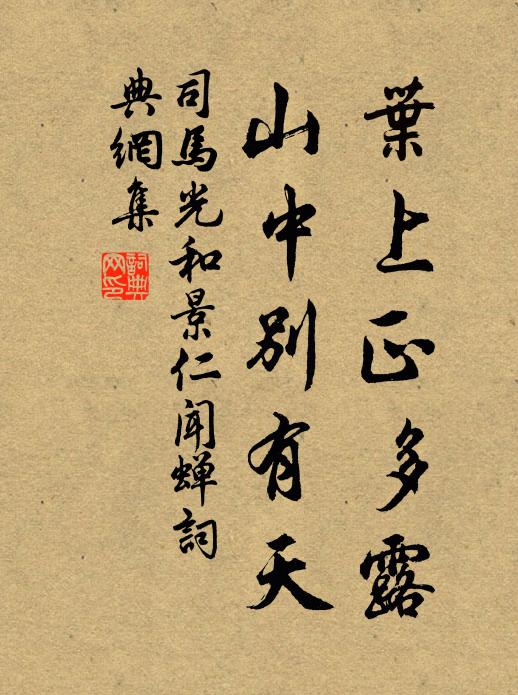 葉上正多露
山中別有天
司馬光和景仁聞蟬詞
典網集
詞典
网印